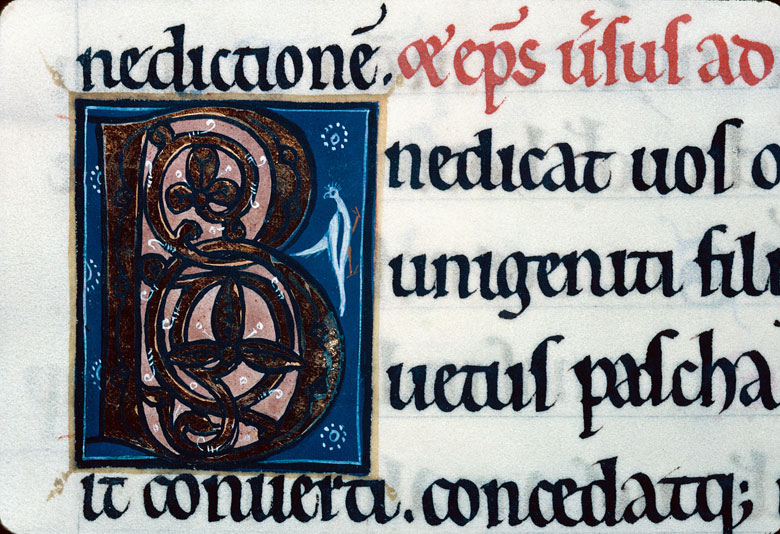 nedictionē. & ep̄s ūsus ad
B nedicat uos o
unigeniti fili
uetus pascha
it conuerti. concedatq;